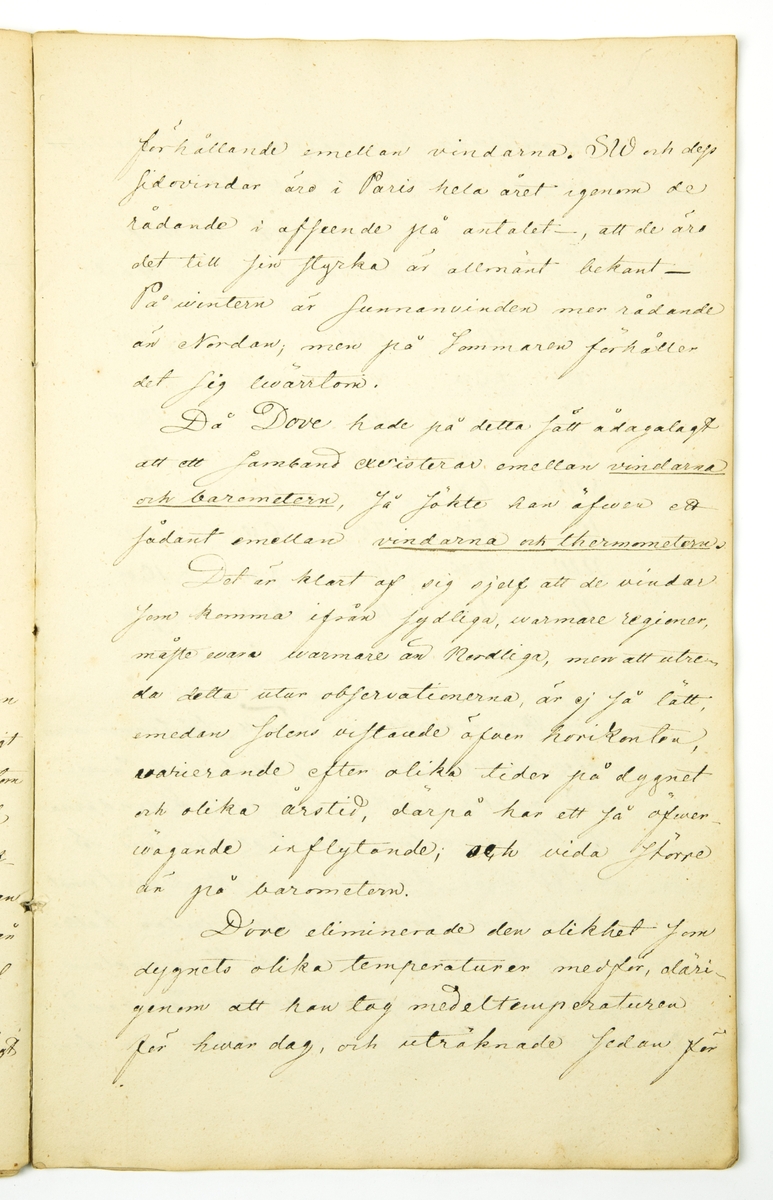 förhållande emellan vindarna. SW och dess
sidovindar äro i Paris hela året igenom de
rådande i afseende på antalet —, att de äro
det till sin styrka är allmänt bekant —
På wintern är Sunnanvinden mer rådande
än Nordan; men på Sommaren förhåller
det sig twärtom.
Då Dove hade på detta sätt ådagalagt
att ett samband existerar emellan vindarna
och barometern, så sökte han äfwer ett
sådant emellan vindarna och thermometern.
Det är klart af sig sjelf att de vindar
som komma ifrån sydliga, warmare regioner,
måste wara warmare än Nordliga, men att utre-
da detta utur observationerna, är ej så lätt,
emedan solens vistande öfver horizonten,
varierande efter olika tider på dygnet
och olika årstid, därpå har ett så öfwer-
wägande inflytande; och vida större
än på barometern.
Dove eliminerade den olikhet som
dygnets olika temperaturer medför, däri-
genom att han tog medeltemperaturen
för hwar dag, och uträknade sedan för